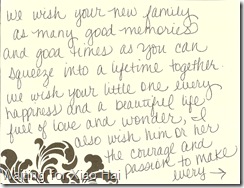 we wish your new family
as many good memories
and good times as you can
squeeze into a lifetime together.
we wish your little one every
happiness and a beautiful life
full of love and wonder. I
also wish him or her
the courage and
passion to make
every →
Waiting for Xing Hai